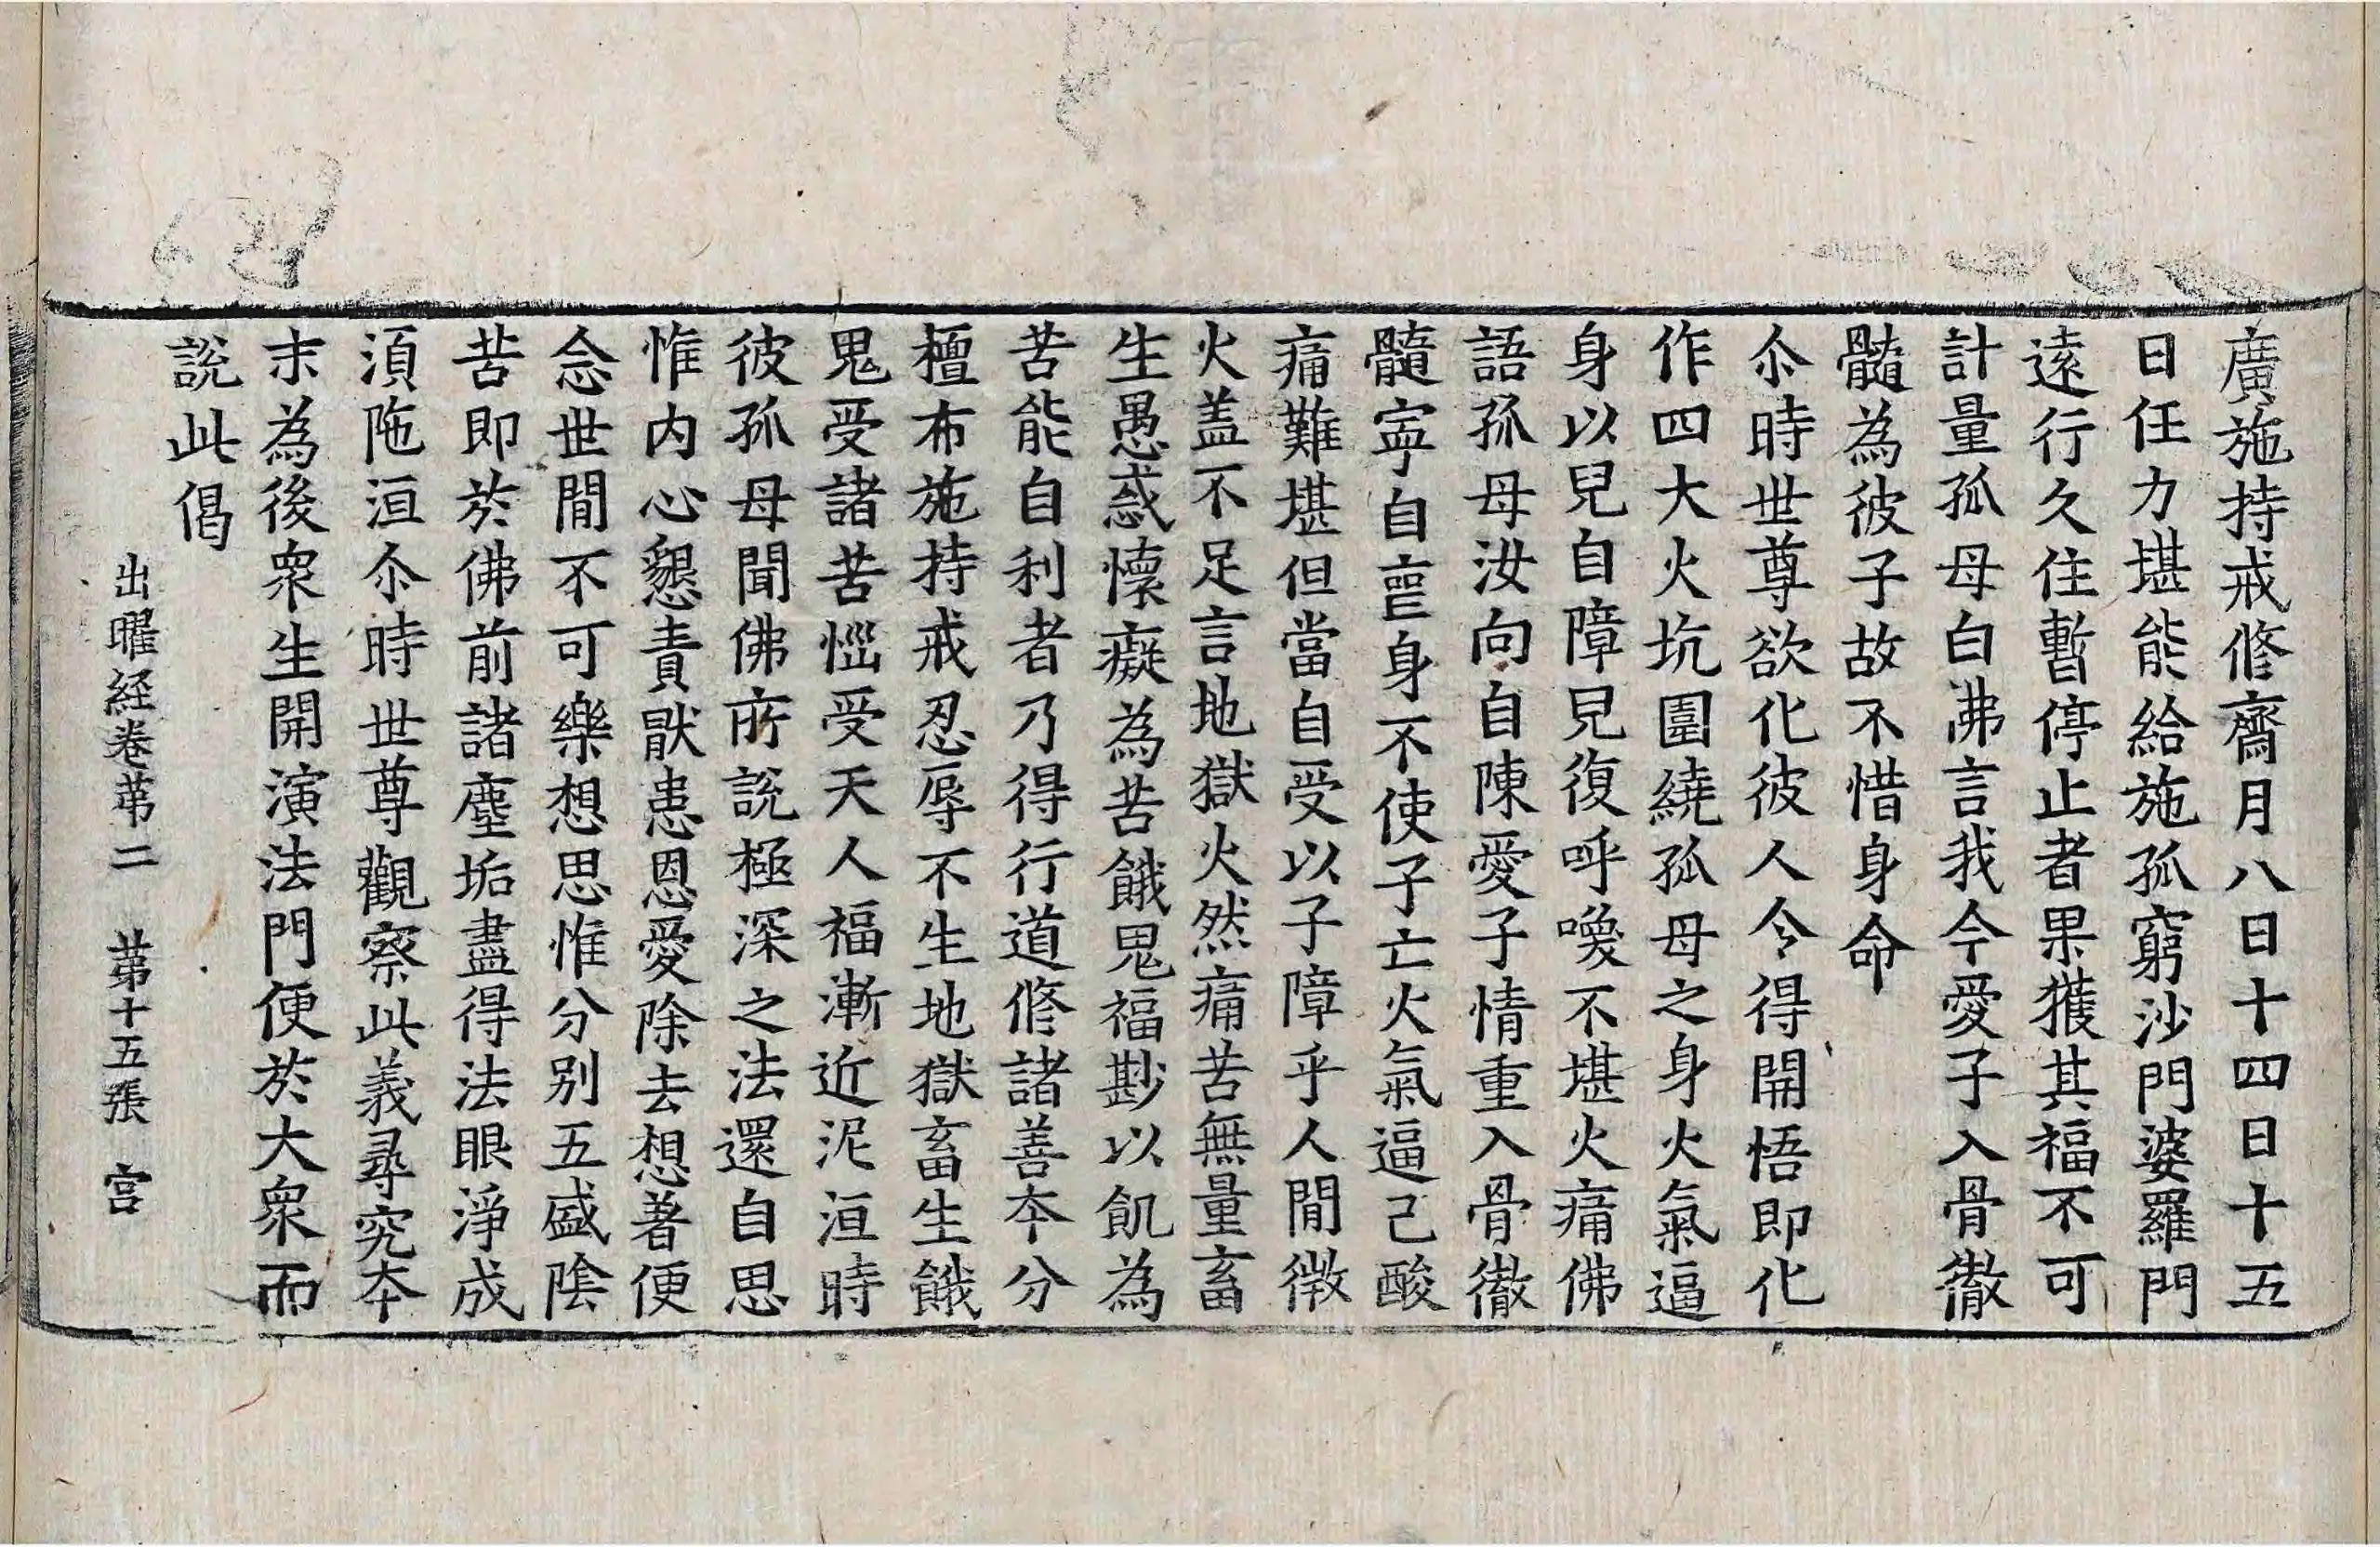 廣施持戒修齋月八日十四日十五
日任力堪能給施孤窮沙門婆羅門
遠行久住暫停止者果獲其福不可
計量孤母白佛言我今愛子入骨徹
髓為彼子故不惜身命
尒時世尊欲化彼人令得開悟即化
作四大火坑圍繞孤母之身火氣逼
身以兒自障兒復呼喚不堪火痛佛
語孤母汝向自陳愛子情重入骨徹
髓寧自喪身不使子亡火氣逼己酸
痛難堪但當自受以子障乎人間微
火盖不足言地獄火然痛苦無量畜
生愚惑懷癡為苦餓鬼福尠以飢為
苦能自利者乃得行道修諸善本分
檀布施持戒忍辱不生地獄畜生餓
鬼受諸苦惱受天人福漸近泥洹時
彼孤母聞佛所說極深之法還自思
惟內心懇責猒患恩愛除去想著便
念世間不可樂想思惟分別五盛陰
苦即於佛前諸塵垢盡得法眼淨成
湏陁洹尒時世尊觀察此義尋究本
末為後衆生開演法門便於大衆而
說此偈
出曜経卷苐二　苐十五張　宮